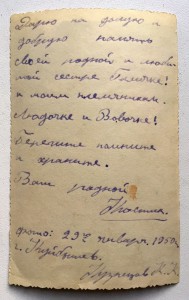 Дарю на долгую и
добрую память
своей родной и люби
мой сестре
и моим племянникам
Людочке и Вовочке!
Берегите папишне
и храните.
Ваш родной
Костя
фото: 29 января 195
г. Куйбышев.